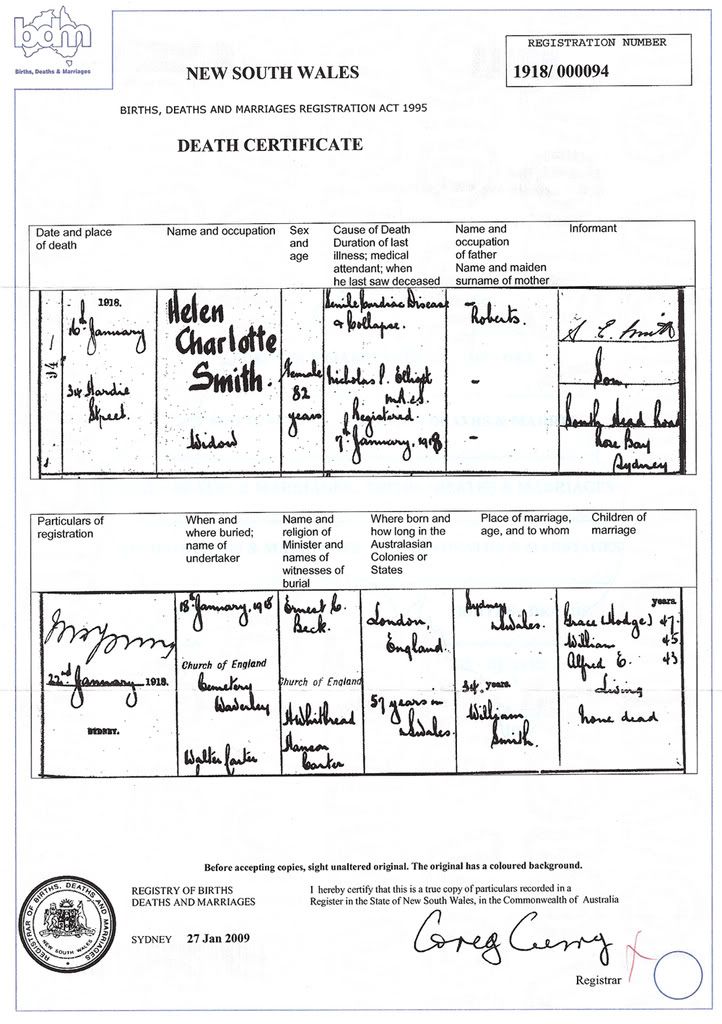 bdm
Births, Deaths & Marriages
REGISTRATION NUMBER
1918/ 000094
NEW SOUTH WALES
BIRTHS, DEATHS AND MARRIAGES REGISTRATION ACT 1995
DEATH CERTIFICATE
Date and place
of death
Name and occupation
Sex
and
age
Cause of Death
Duration of last
illness; medical
attendant; when
he last saw deceased
Name and
occupation
of father
Name and maiden
surname of mother
Informant
94
1918.
16th January
34 Hardie
Street.
Helen
Charlotte
Smith.
Widow
Female
82
years
Senile Cardiac Disease
& Collapse.
Nicholas P. Elliott
Registered.
7th January, 1918
Roberts.
-
-
A E. Smith
Son,
South Head Road
Rose Bay
Sydney
Particulars of
registration
When and
where buried;
name of
undertaker
Name and
religion of
Minister and
names of
witnesses of
burial
Where born and
how long in the
Australasian
Colonies or
States
Place of marriage,
age, and to whom
Children of
marriage
22nd January 1918.
SYDNEY.
18th January, 1918
Church of England
Cemetery
Waverley
Walter Carter
Ernest C.
Beck.
Church of England
A Whitbread
Hanson
Carter
London,
England.
57 years in
N.S.Wales.
Sydney
N.S.Wales.
34, years.
William
Smith.
years.
Grace (Hodge) 47.
William 45
Alfred E. 43
Living
None dead
Before accepting copies, sight unaltered original. The original has a coloured background.
REGISTRY OF BIRTHS
DEATHS AND MARRIAGES
SYDNEY 27 Jan 2009
I hereby certify that this is a true copy of particulars recorded in a
Register in the State of New South Wales, in the Commonwealth of Australia
Greg Curry
Registrar
REGISTRAR OF BIRTHS, DEATHS AND MARRIAGES
NEW SOUTH WALES